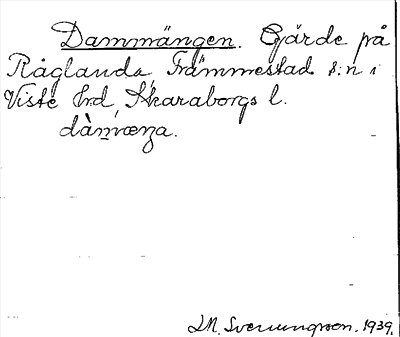 Dammängen. Gärde på
Råglanda, Främmestad s:n i
Viste hrd, Skaraborgs l.
dàmæŋa.
J.M. Svenungsson. 1939.